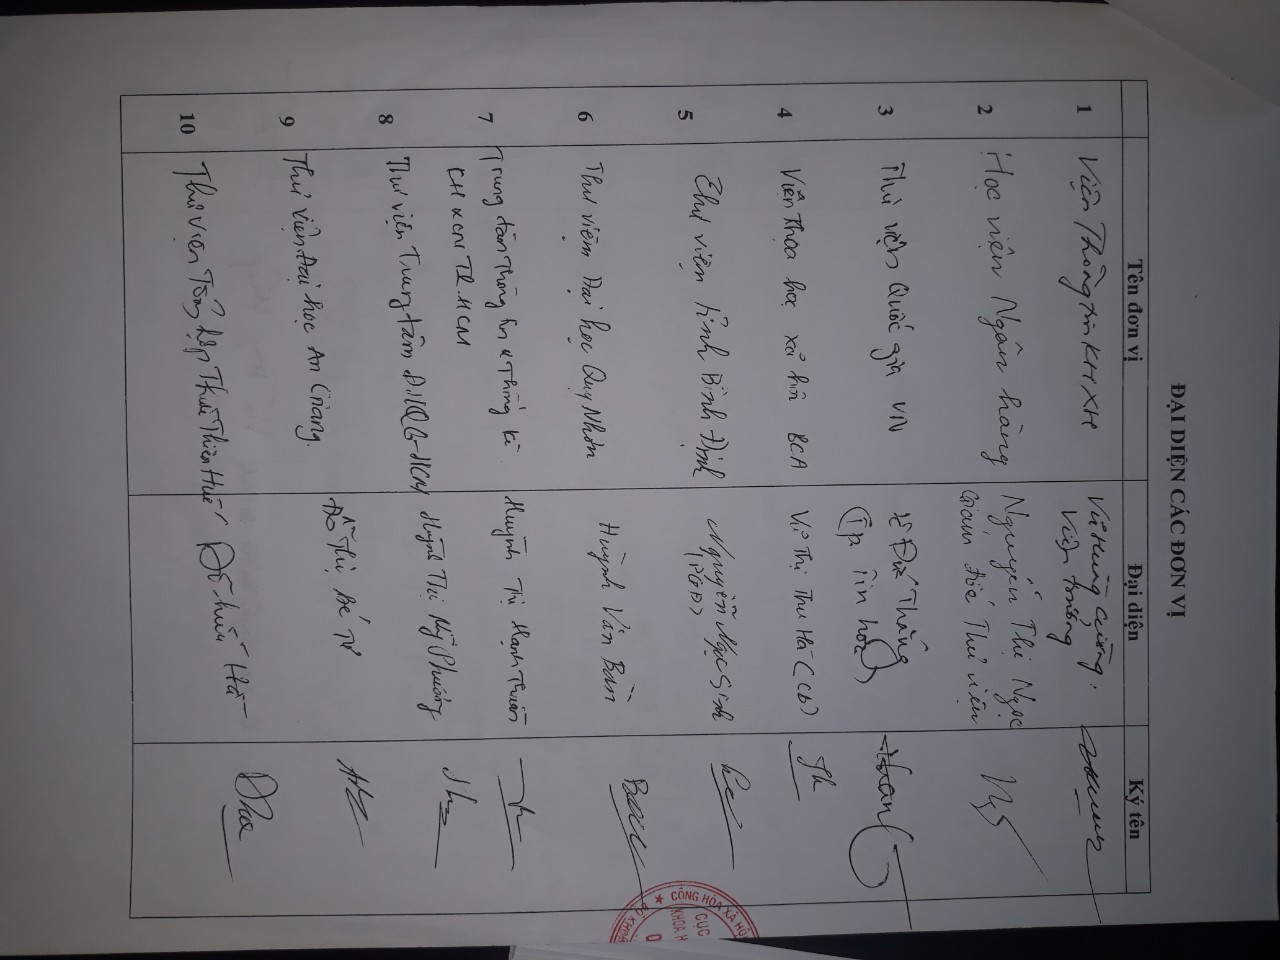 ĐẠI DIỆN CÁC ĐƠN VỊ
Tên đơn vị Đại diện Ký tên
1 Viện Thông tin KHXH Vũ Hùng Cường.
Viện trưởng
2 Học viện Ngân hàng Nguyễn Thị Ngọc
Giám đốc Thư viện
3 Thư viện Quốc gia VN Lê Đức Thắng
(Tp. Tin học)
4 Viện Khoa học xã hội BCA Vũ Thị Thu Hà (CB)
5 Thư viện tỉnh Bình Định Nguyễn Ngọc Sinh
(PGĐ)
6 Thư viện Đại học Quy Nhơn Huỳnh Văn Bân
7 Trung tâm Thông tin & Thống kê
KH & CN TP. HCM Huỳnh Thị Hạnh
8 Thư viện Trung tâm ĐHQG-HCM Huỳnh Thị Mỹ Phương
9 Thư viện Đại học An Giang. Đỗ Thị Bé Tư
10 Thư viện Tổng hợp Thừa Thiên Huế Đỗ Hữu Hà
CỘNG HÒA XÃ HỘ
CỤC
KHOA H